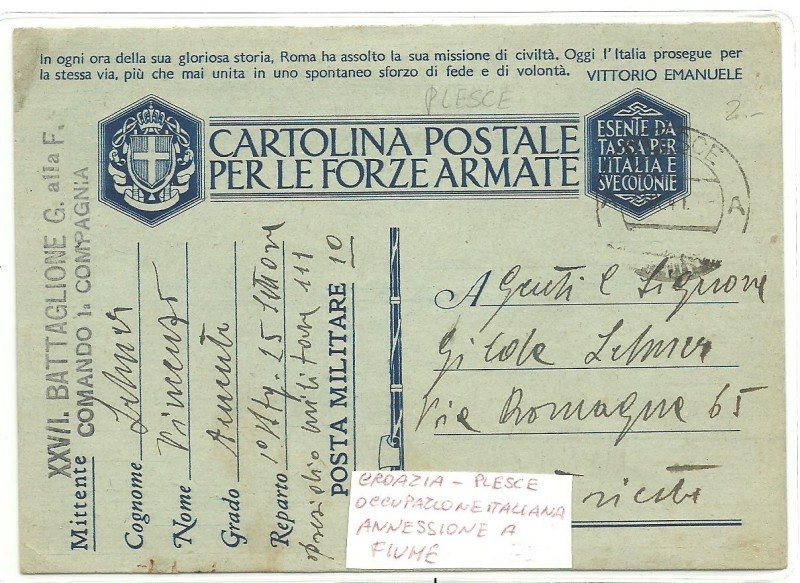 In ogni ora della sua gloriosa storia, Roma ha assolto la sua missione di civiltà. Oggi l'Italia prosegue per
la stessa via, più che mai unita in uno spontaneo sforzo di fede e di volontà. VITTORIO EMANUELE
PLESCE
2.-
CARTOLINA POSTALE
PER LE FORZE ARMATE
ESENTE DA
TASSA PER
L'ITALIA E
SVE COLONIE
SCE
A
XXV/I. BATTAGLIONE G. alla F.
COMANDO 1ª COMPAGNIA
Mittente
Cognome
Nome Vincenzo
Grado
Reparto 1º Btg. 25 Settore
presidio militare 111
POSTA MILITARE 10
A Gentil Signora
Gilda
Via Romagna 65
Trieste
CROAZIA - PLESCE
OCCUPAZIONE ITALIANA
ANNESSIONE A
FIUME